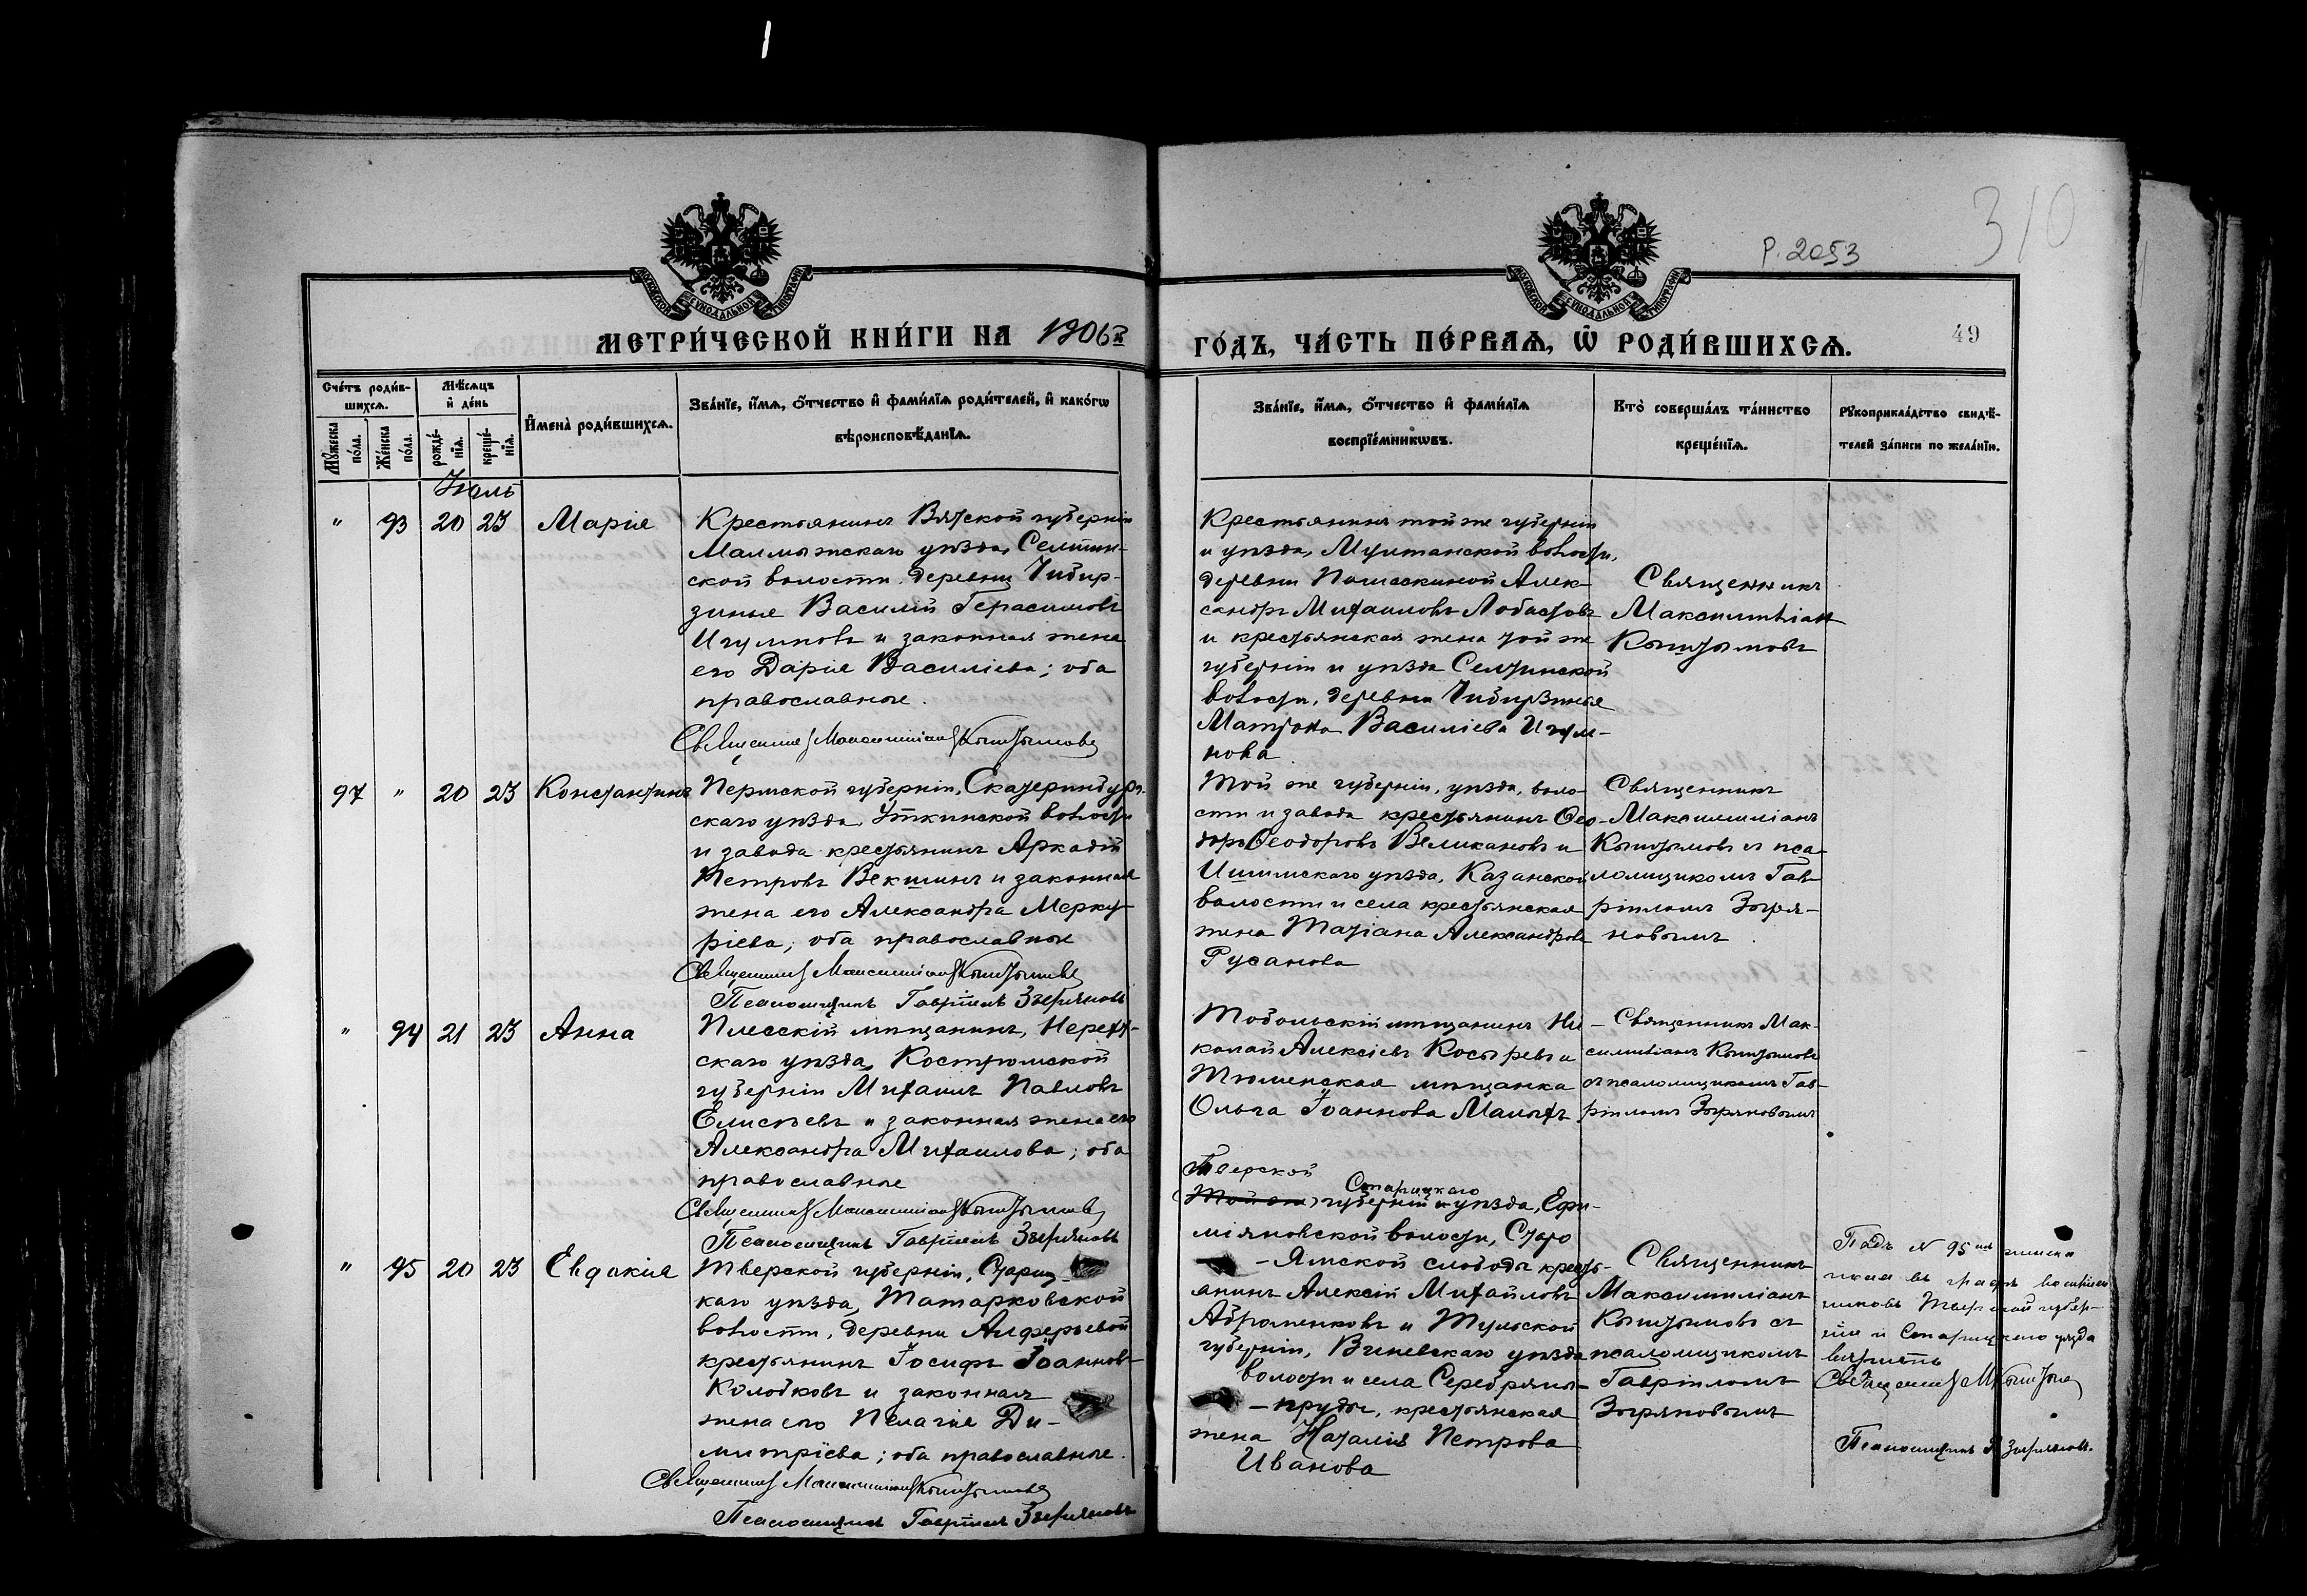 310
Р. 2053
МОСКОВСКОЙ СѴНОДАЛЬНОЙ ТИПОГРАФІИ
МОСКОВСКОЙ СѴНОДАЛЬНОЙ ТИПОГРАФІИ
МЕТРИ́ЧЕСКОЙ КНИ́ГИ НА 1906й
ГО́ДЪ, ЧА́СТЬ ПЕ́РВАѦ, Ѡ҆ РОДИ́ВШИХСѦ.
49
Сче́тъ роди́в-
шихсѧ.
Мꙋ́жеска по́ла.
Же́нска по́ла.
Мѣ́сѧцъ
и҆ де́нь
рожде́-нїѧ.
креще́-нїѧ.
И҆мена̀ роди́вшихсѧ.
Зва́нїе, и҆́мѧ, ѻ҆́тчество и҆ фами́лїѧ роди́телей, и҆ како́гѡ
вѣроисповѣ́данїѧ.
Зва́нїе, и҆́мѧ, ѻ҆́тчество и҆ фами́лїѧ
воспрїе́мникѡвъ.
Кто̀ соверша́лъ та́инство
креще́нїѧ.
Рꙋкоприкла́дство свидѣ́-
телей за́писи по жела́нїю.
Іюль
" 93 20 23 Марія
Крестьянинъ Вятской губерніи
Малмыжскаго уѣзда, Селтин-
ской волости, деревни Чибир-
зинье Василій Герасимовъ
Игумновъ и законная жена
его Дарія Василіева; оба
православные.
Священникъ Максимиліанъ Кыштымовъ
Крестьянинъ той же губерніи
и уѣзда, Мултанской волости,
деревни Александръ Михаиловъ
и крестьянская жена той же
губерніи и уѣзда Селтинской
волости, деревни Чибирзинье
Матрона Василіева Игум-
нова
Священникъ
Максимиліан
Кыштымовъ
97 " 20 23 Константинъ
Пермской губерніи, Екатеринбург-
скаго уѣзда, Уткинской волости
и завода крестьянинъ Аркадій
Петровъ Векшинъ и законная
жена его Александра Мерку-
ріева; оба православные
Священникъ Максимиліанъ Кыштымовъ
Псаломщикъ Гавріилъ Зыряновъ
Той же губерніи, уѣзда, воло-
сти и завода крестьянинъ Ѳео-
доръ Ѳеодоровъ Великановъ и
Ишимскаго уѣзда, Казанской
волости и села крестьянская
жена Татіана Александрова
Русанова
Священникъ
Максимиліанъ
Кыштымовъ съ пса-
ломщикомъ Гав-
ріиломъ Зыря-
новымъ.
" 94 21 23 Анна
Плесскій мѣщанинъ, Нерехт-
скаго уѣзда, Костромской
губерніи Михаилъ Павловъ
Елисѣевъ и законная жена его
Александра Михаилова; оба
православные
Священникъ Максимиліанъ Кыштымовъ
Псаломщикъ Гавріилъ Зыряновъ
Тобольскій мѣщанинъ Ни-
колай Алексіевъ Косыревъ и
Тюменская мѣщанка
Ольга Іоаннова Малыхъ
Священникъ Мак-
симиліанъ Кыштымовъ
съ псаломщикомъ Гав-
ріиломъ Зыряновымъ
" 95 20 23 Евдокія
Тверской губерніи, Стариц-
каго уѣзда, Татарковской
волости, деревни Алферьевой
крестьянинъ Іосифъ Іоанновъ
Колобковъ и законная
жена его Пелагія Ди-
митріева; оба православные.
Священникъ Максимиліанъ Кыштымовъ
Псаломщикъ Гавріилъ Зыряновъ
Тверской
Старицкаго
(Той же) губерніи и уѣзда, Ефи-
міановской волости, Старо
-Ямской слободы кресть-
янинъ Алексій Михайловъ
Абраменковъ и Тульской
губерніи, Веневскаго уѣзда
волости и села Серебряны-
-пруды, крестьянская
жена Наталія Петрова
Иванова
Священникъ
Максимиліанъ
Кыштымовъ съ
псаломщикомъ
Гавріиломъ
Зыряновымъ
Подъ N 95
въ графѣ воспріем
никовъ Тверской губер-
ніи и Старицкаго уѣзда
вѣрить
Священникъ М Кыштымовъ
Псаломщикъ Г Зыряновъ.